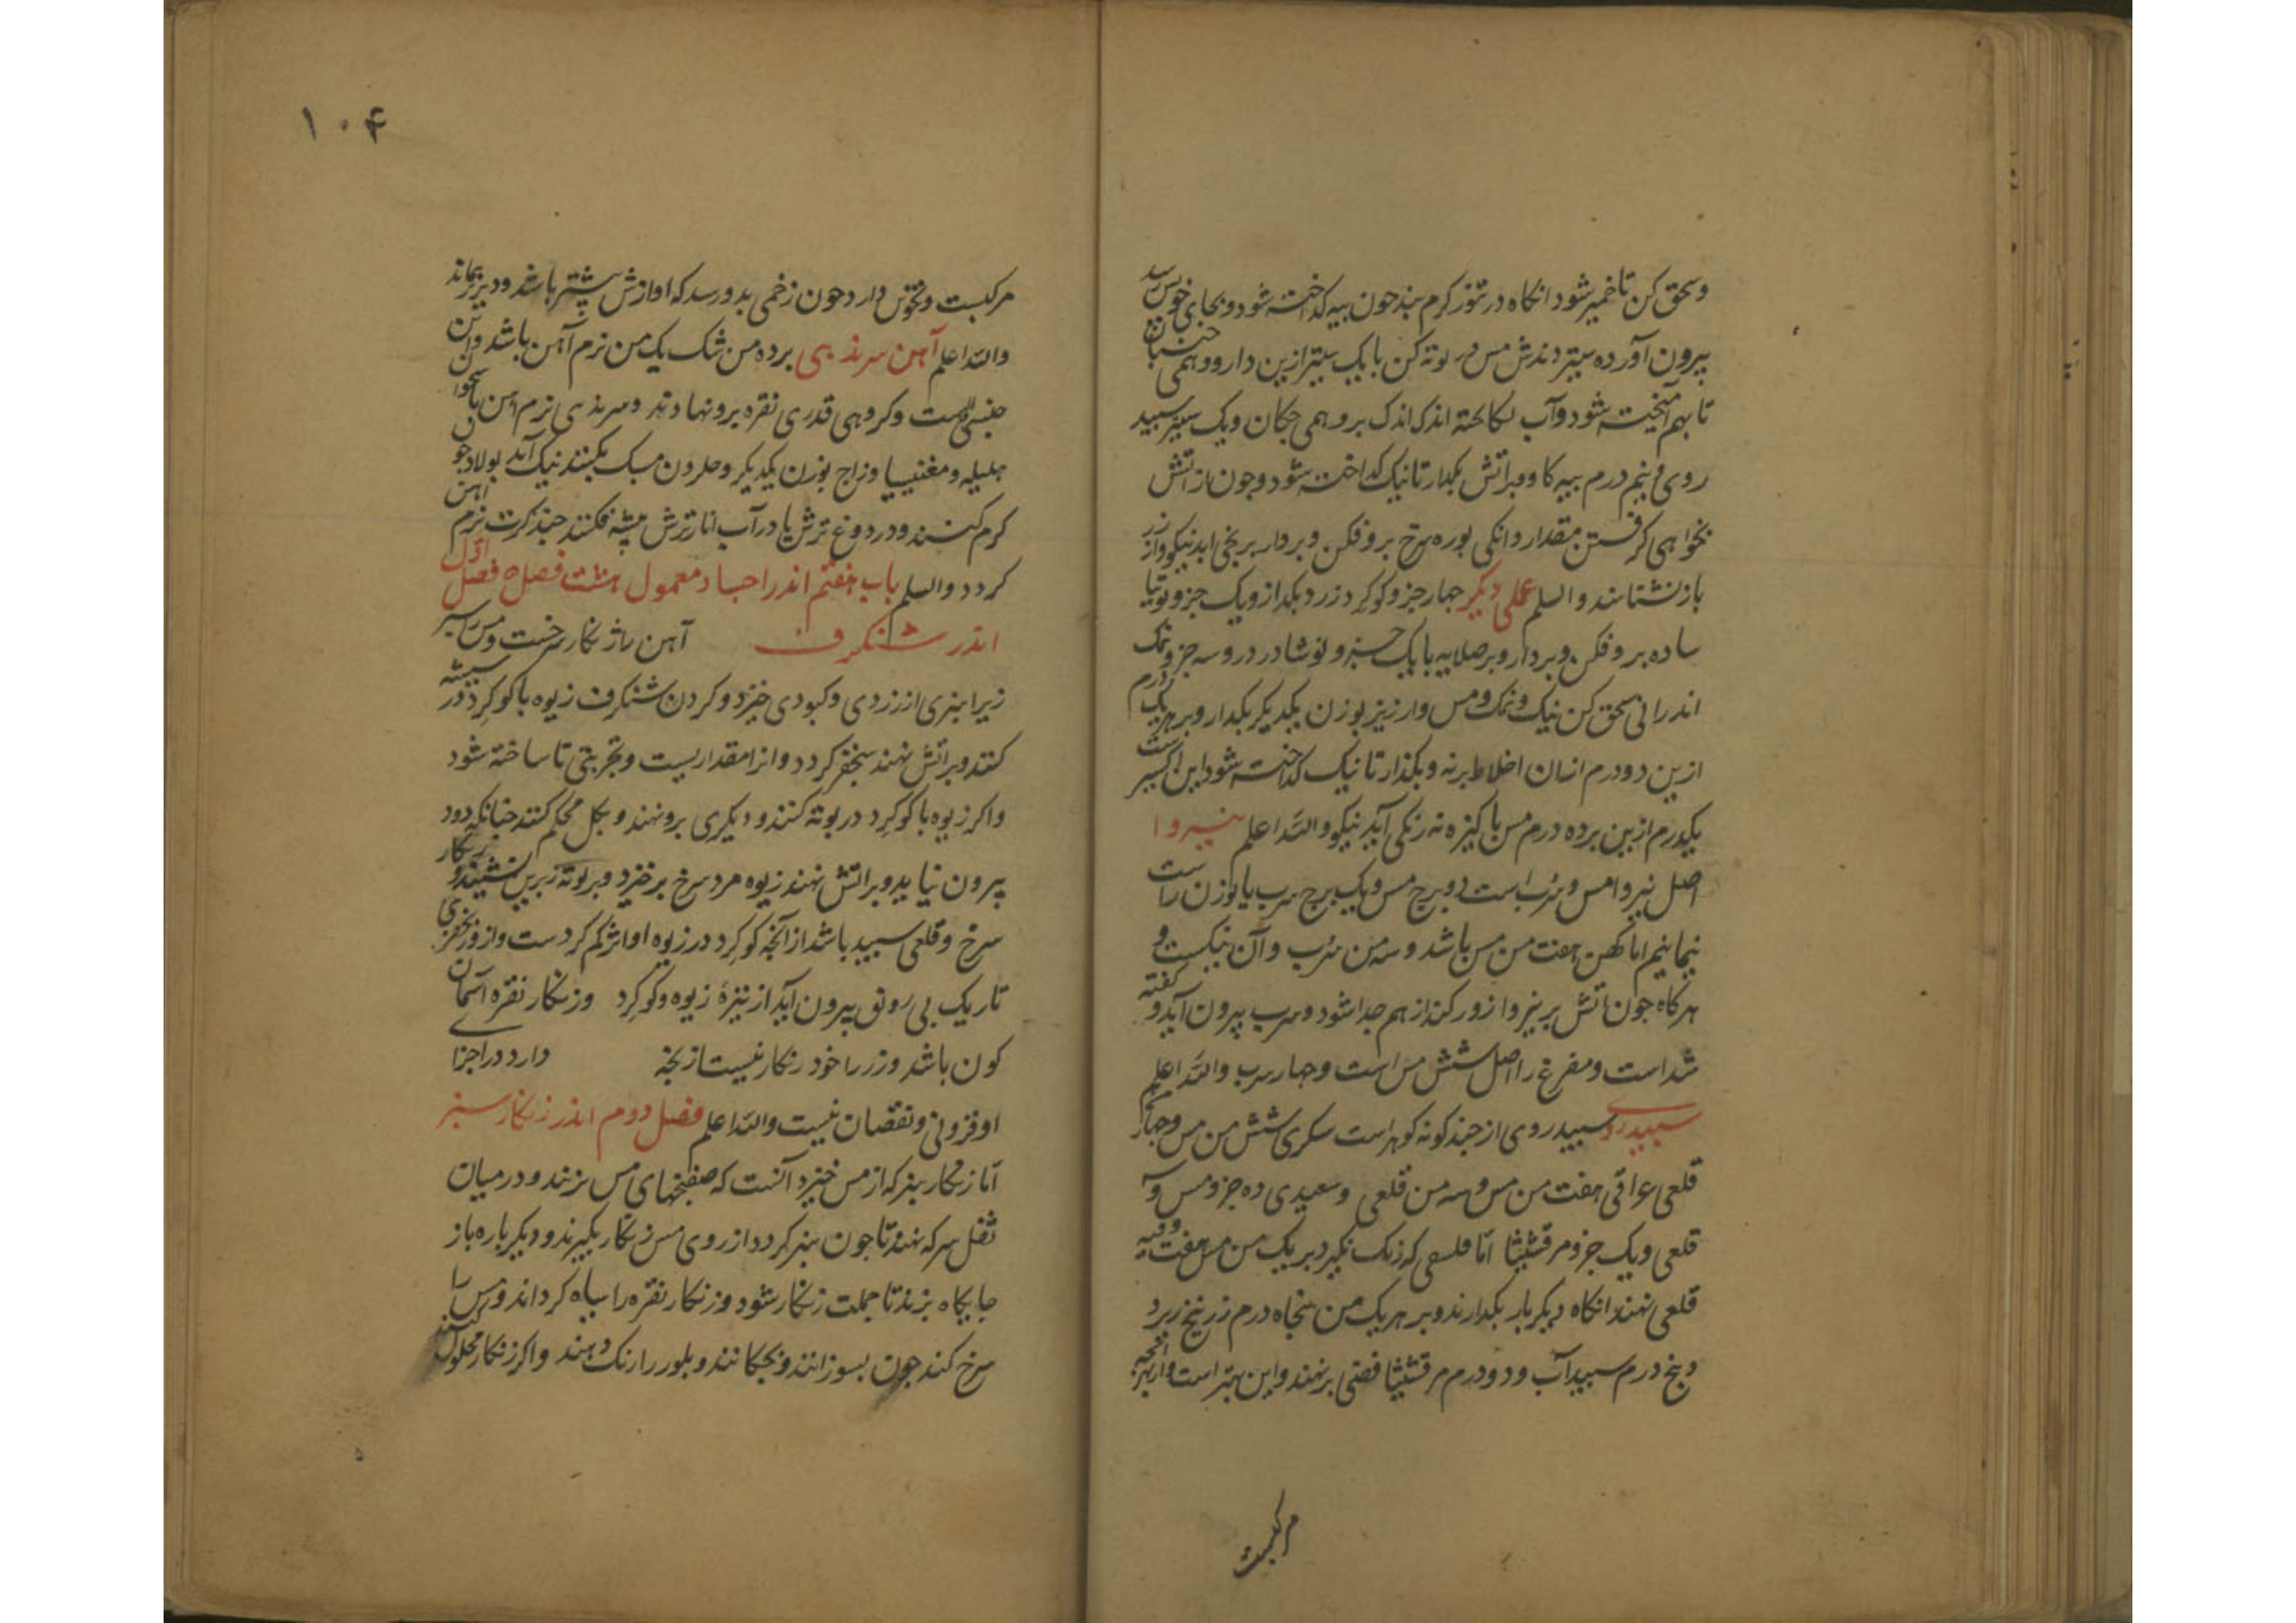 وسحق کن تا خمیر شود انکاه در تنور کرم بند جون پیه کداخته شود و بجای خویش رسد
بیرون آورده ستیر دندش مس در بوته کن با یک ستیر ازین دارو و همی جنبان
تا بهم آمیخته شود و آب اندک اندک برو همی جکان و یک ستیر سپید
روی و نیم درم پیه کاو و براتش بکدار تا نیک کداخته شود و جون از اتش
بخواهی کرفتن مقدار دانکی بوره سرخ بروفکن و بردار برنجی اید نیکو و از زر
باز نشناسند والسلم عملی دیکر جهار جزو کوکرد زرد بکداز و یک جزو توتیا
ساده بروفکن و بردار و بر صلایه با یک جزو نوشادر و سه جزو نمک
اندرانی سحق کن نیک و نمک و مس و ارزیز بوزن یکدیکر بکدار و بر هر یک درم
ازین دو درم ازان اخلاط برنه و بکذار تا نیک کداخته شود این اکسیر است
یکدرم ازین بر ده درم مس پاکیزه نه رنکی آید نیکو والله اعلم نیروا
اصل نیروا مس و سرب است دو برج مس و یک برج سرب یا بوزن راست
نیمانیم اما کهن هفت من مس باشد و سه من سرب و آن نیکست و
هرکاه جون اتش بر نیروا زور کند از هم جدا شود و سرب بیرون آید و کفته
شداست و مفرغ را اصل شش من مس است و جهار سرب والله اعلم
سپیدروی سپیدروی از جند کونه کوهراست سکری شش من مس و جهار
قلعی عراقی هفت من مس و سه من قلعی و سعیدی ده جزو مس و
قلعی و یک جزو مرقشیثا امّا فلسی که زنک نکیرد بر یک من مس هفت وقیه
قلعی نهند انکاه دیکر بار بکدارند و بر هر یک من پنجاه درم زرنیخ زرد
و پنج درم سپیدآب و دو درم مرقشیثا فضی برنهند و این بهتراست
مرکبست
۱۰۴
مرکبست و تقوس دارد جون زخمی بدو رسد که اوازش بیشتر باشد و دیرتر بماند
والله اعلم آهن سرندیبی بر ده من شک یک من نرم آهن باشد و این
جنسی است و کروهی قدری نقره برو نهادند و سرندیبی نرم آهن
هلیله و مغنیسیا و زاج بوزن یکدیکر نیک آید بولاد جو
کرم کنند و در دوغ ترش یا در آب انار ترش فکنند جند کرت نرم آهن
کردد والسلم باب هفتم اندر اجساد معمول هشت فصل ه فصل اوّل
اندر شنکرف آهن را زنکار سرخست و مس را سبز
زیرا سبزی از زردی و کبودی خیزد و کردن شنکرف زیوه با کوکرد در شیشه
کنند و براتش نهند سنجفر کردد و انرا مقداریست و تجربتی تا ساخته شود
و اکر زیوه با کوکرد در بوته کنند و دیکری برو نهند و بکل محکم کنند جنانکه دود
بیرون نیاید و براتش نهند زیوه مرد سرخ برخیزد و بر بوته زبرین نشیند و زنکار
سرخ و قلعی سپید باشد از آنجه کوکرد در زیوه او اثر کم کردست و از زور
تاریک بی رونق بیرون آید از تیزهٔ زیوه و کوکرد و زنکار نقره آسمان
کون باشد و زر را خود زنکار نیست ازیجه دارد در اجزای
او فزونی و نقصان نیست والله اعلم فصل دوم اندر زنکار سبز
امّا زنکار سبز که از مس خیزد آنست که صفیحهای مس بزنند و در میان
ثفل سرکه نهند تا جون سبز کردد از روی مس زنکار بکیرند و دیکر باره باز
جایکاه برند تا جملت زنکار شود و زنکار نقره را سیاه کرداند و مس را
سرخ کند جون بسوزانند و بجکانند و بلور را رنک دهند و اکر زنکار محلول کنند